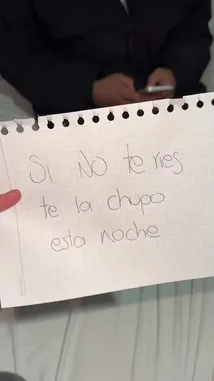 SI NO te ries
te la chupo
esta noche